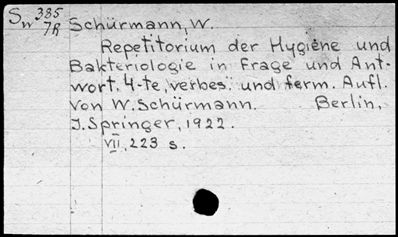 Sw 385/7R Schürmann, W.
Repetitorium der Hygiene und
Bakteriologie in Frage und Ant-
wort. 4-te, verbes. und ferm. Aufl.
von W. Schürmann. Berlin,
J. Springer, 1922.
VII, 223 s.